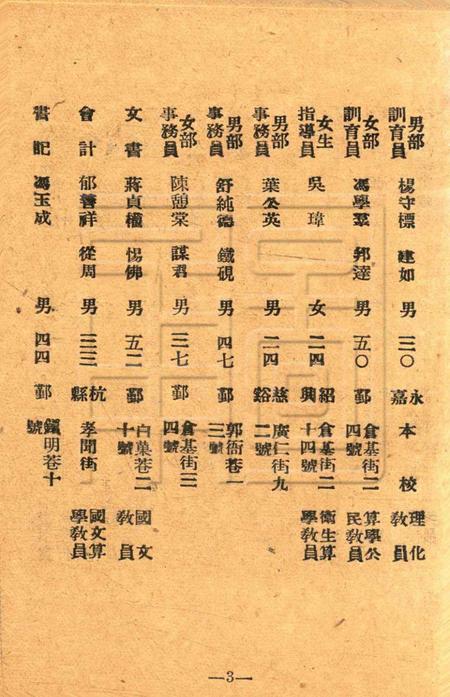 男部訓育員 楊守標 建如 男 三〇 永嘉 本校 理化教員
女部訓育員 馮學羣 邦達 男 五〇 鄞 倉基街二四號 算學公民教員
女生指導員 吳瑋 女 二四 紹興 倉基街二十四號 衛生算學教員
男部事務員 葉公英 男 二四 慈谿 廣仁街九二號
男部事務員 舒純德 鐵硯 男 四七 鄞 郭衙巷一三號
女部事務員 陳憩棠 謀君 男 三七 鄞 倉基街三四號
文書 蔣貞權 惕佛 男 五二 鄞 白菓巷二十號 國文教員
會計 郁善祥 從周 男 三三 杭縣 孝聞街 國文算學教員
書記 馮玉成 男 四四 鄞 鎮明巷十號
—3—